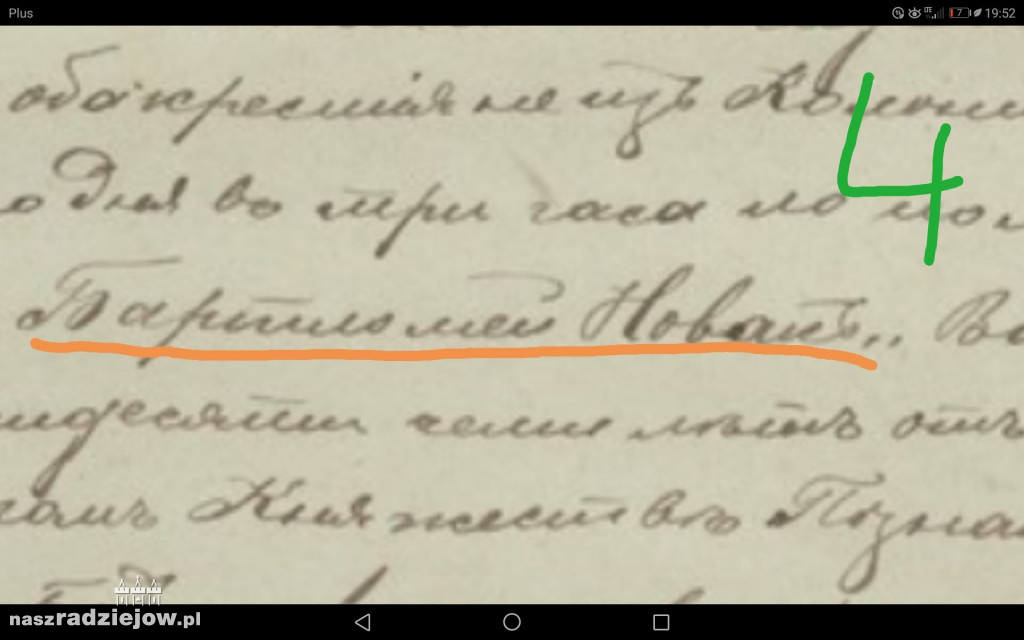 Plus 7 19:52
оба крестіяне изъ Колони
4
о дня въ три часа по пол
Бартломей Новакъ,, В
идесяти семи лѣтъ отъ
Княжество Позна
naszradziejow.pl